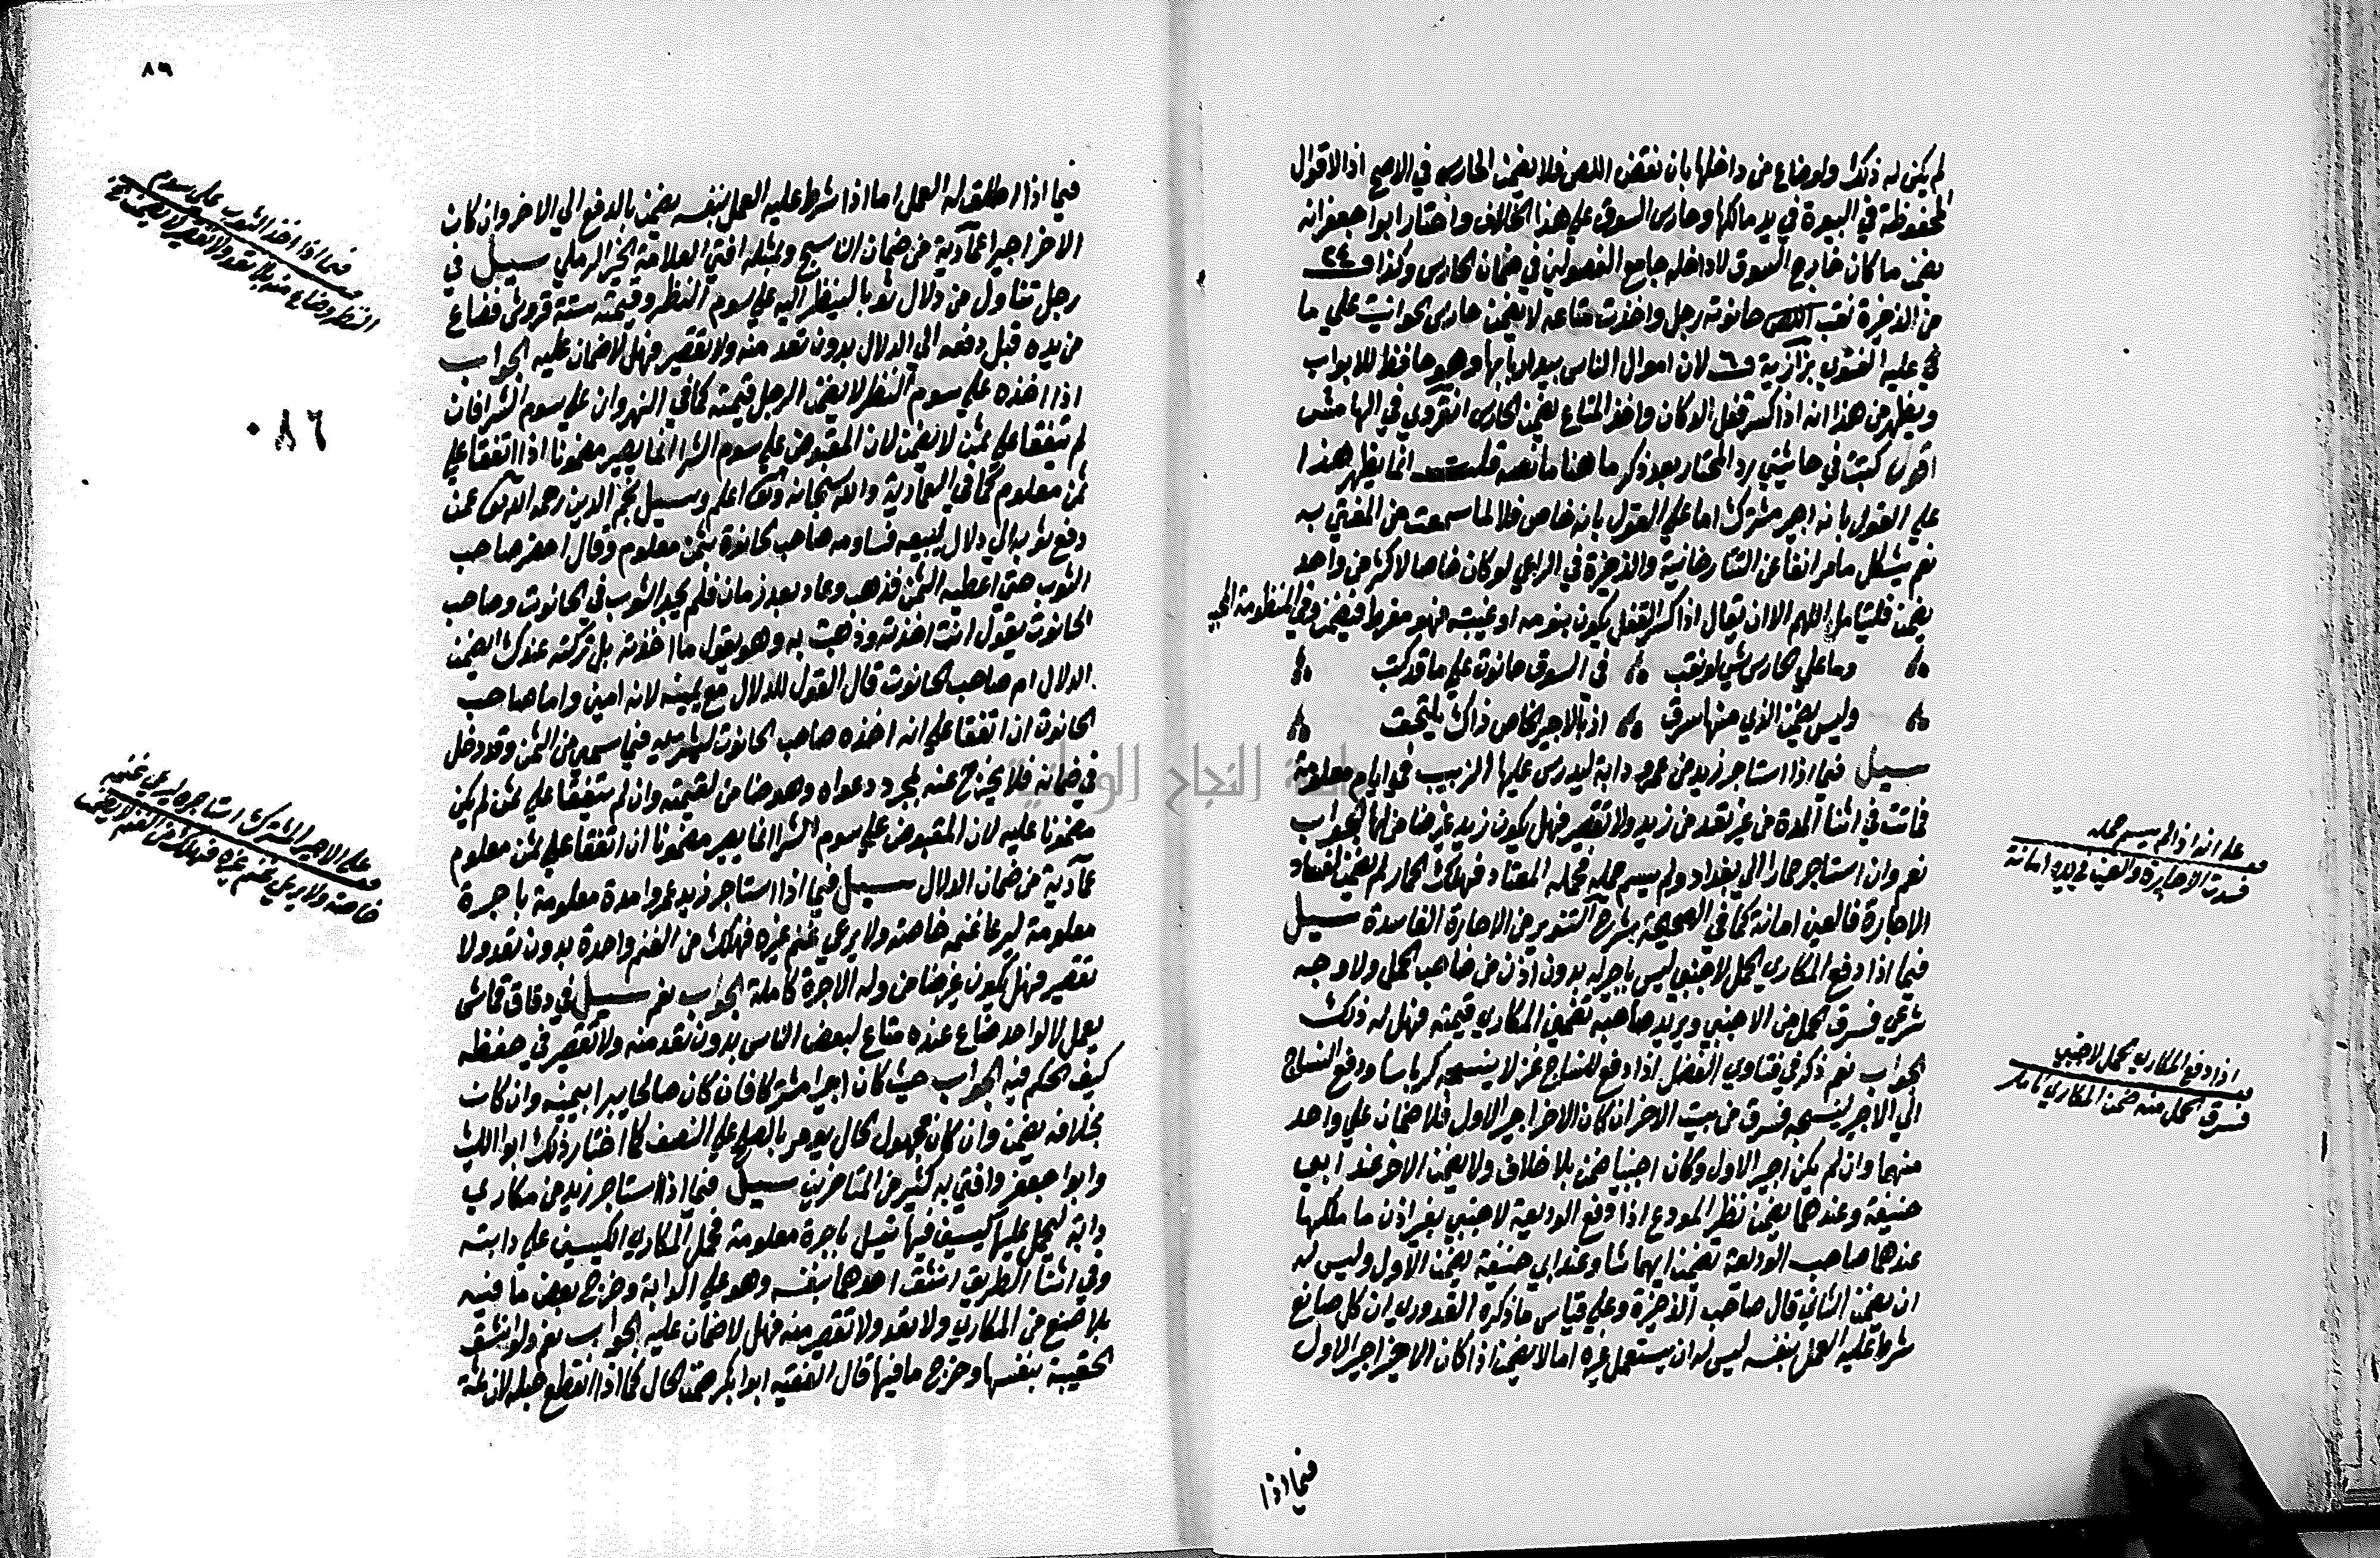 لم يكن له ذلك ولو ضاع من داخلها بان نقض اللص فلا يضمن الحارس في الاصح اذ الاقوال
المحفوظة في البيوت في يد مالكها وحارس السوق على هذا الخلاف واختار ابو جعفر انه
يضمن ما كان خارج السوق لا داخله جامع الفصولين في ضمان الحارس وكذا في
من الذخيرة نقب اللص حانوت رجل واخذت متاعه لا يضمن حارس الحوانيت علي ما
عليه الفتوي بزازية لان اموال الناس بيد اربابها وهو حافظ للابواب
ويظهر من هذا انه اذا كسر قفل الدكان واخذ المتاع يضمن الحارس انقروي في الهامش
اقول كتبت في حاشيتي رد المحتار بعد ذكر ما هنا ما نصه قلت انما يظهر هذا
علي القول بانه اجير مشترك اما علي القول بانه خاص فلا لما سمعت من المفتي به
نعم يشكل ما مر انفا عن التتارخانية والذخيرة في الراعي لو كان خاصا لاكثر من واحد
يضمن فليتامل اللهم الا ان يقال اذا كسر القفل يكون بنومه او غيبته فهو مفرط فيضمن وفي المنظومة المحبية
وما علي الحارس شي لو نقب في السوق حانوت علي ما قد كتب
وليس يضمن الذي منها سرق اذ بالاجير الخاص ذاك يلتحق
سيل فيما اذا استاجر زيد من عمرو دابة ليدرس عليها الزبيب في ايام معلومة
فماتت في اثنا المدة من غير تعد من زيد ولا تقصير فهل يكون زيد غير ضامن لها الجواب
نعم وان استاجر حمارا الي بغداد ولم يسم حمله فحمله المعتاد فهلك الحمار لم يضمن لفساد
الاجارة فالعين امانة كما في الصحيحة شرح التنوير من الاجارة الفاسدة سيل
فيما اذا دفع المكاري الحمل لاجنبي ليس باجير له بدون اذن من صاحب الحمل ولا وجه
شرعي فسرق الحمل من الاجنبي ويريد صاحبه تضمين المكاري قيمته فهل له ذلك
الجواب نعم ذكر في فتاوي الفضل اذا دفع للنساج غزلا ينسجه كرباسا ودفع النساج
الي الاجير لينسجه فسرق من بيت الاخر ان كان الاخر اجير الاول فلا ضمان علي واحد
منهما وان لم يكن اجير الاول وكان اجنبيا ضمن بلا خلاف ولا يضمن الاخر عند ابي
حنيفة وعندهما يضمن نظير المودع اذا دفع الوديعة لاجنبي بغير اذن مالكها
عندهما صاحب الوديعة يضمن ايهما شا وعند ابي حنيفة يضمن الاول وليس له
ان يضمن الثاني قال صاحب الذخيرة وعلي قياس ما ذكره القدوري ان كل صانع
شرط عليه العمل بنفسه ليس له ان يستعمل غيره اما لا يضمن اذا كان الاخر اجير الاول
فيما اذا
علي انه اذا لم يسم حمله
فسدت الاجارة والعين في يده امانة
اذا دفع المكاري الحمل لاجنبي
فسرق الحمل منه ضمن المكاري
٨٦
فيما اذا اطلق له العمل اما اذا شرط عليه العمل بنفسه يضمن بالدفع الي الاخر وان كان
الاخر اجيرا عمادية من ضمان النساج وبمثله افتي العلامة الخير الرملي سيل في
رجل تناول من دلال ثوبا لينظر اليه علي سوم النظر وقيمته ستة قروش فضاع
من يده قبل دفعه الي الدلال بدون تعد منه ولا تقصير فهل لا ضمان عليه الجواب
اذا اخذه علي سوم النظر لا يضمن الرجل قيمته كما في النهر وان علي سوم الشرا فان
لم يتفقا علي ثمن لا يضمن لان المقبوض علي سوم الشرا انما يصير مضمونا اذا اتفقا علي
ثمن معلوم كما في العمادية والله سبحانه وتعالى اعلم وسيل نجم الدين رحمه الله تعالى عمن
دفع ثوبه الي دلال ليبيعه فساومه صاحب حانوت بثمن معلوم وقال احضر صاحب
الثوب حتي اعطيه الثمن فذهب وعاد بعد زمان فلم يجد الثوب في الحانوت وصاحب
الحانوت يقول انت اخذته وذهبت به وهو يقول ما اخذته بل تركته عندك ايضمن
الدلال ام صاحب الحانوت قال القول للدلال مع يمينه لانه امين واما صاحب
الحانوت ان اتفقا علي انه اخذه صاحب الحانوت ليشتريه فيما سمي من الثمن وقد دخل
في ضمانه فلا يخرج عنه بمجرد دعواه وهو ضامن لقيمته وان لم يتفقا علي ثمن لم يكن
مضمونا عليه لان المقبوض علي سوم الشرا انما يصير مضمونا ان اتفقا علي ثمن معلوم
عمادية من ضمان الدلال سيل فيما اذا استاجر زيد عمروا مدة معلومة باجرة
معلومة ليرعا غنمه خاصة ولا يرعي غنم غيره فهلك من الغنم واحدة بدون تعد ولا
تقصير فهل يكون غير ضامن وله الاجرة كاملة الجواب نعم سيل في دقاق قماش
يعمل لا لواحد ضاع عنده متاع لبعض الناس بدون تعد منه ولا تقصير في حفظه
كيف الحكم فيه الجواب حيث كان اجيرا مشتركا فان كان صالحا يبرا بيمينه وان كان
بخلافه يضمن وان كان مجهول الحال يومر بالصلح علي النصف كما اختار ذلك ابو الليث
وابو جعفر وافتي به كثير من المتاخرين سيل فيما اذا استاجر زيد من مكاري
دابة ليحمل عليها كيسين فيها نيل باجرة معلومة فحمل المكاري الكيسين علي دابته
وفي اثنا الطريق انشق احدهما بنفسه وهو علي الدابة وخرج بعض ما فيه
بلا صنع من المكاري ولا تعد ولا تقصير منه فهل لا ضمان عليه الجواب نعم ولو انشق
الحقيبة بنفسها وخرج ما فيها قال الفقيه ابو بكر ضمن الحمال كما اذا انقطع حبله لان ثمة
فيما اذا اخذ الثوب علي سوم
النظر وضاع منه بلا تعد ولا تقصير لا يضمن قيمته
٠٨٦
علي الاجير المشترك استاجره ليرعي غنمه
خاصة ولا يرعي غنم غيره فهلك من الغنم لا يضمن
جامعة النجاح الوطنية